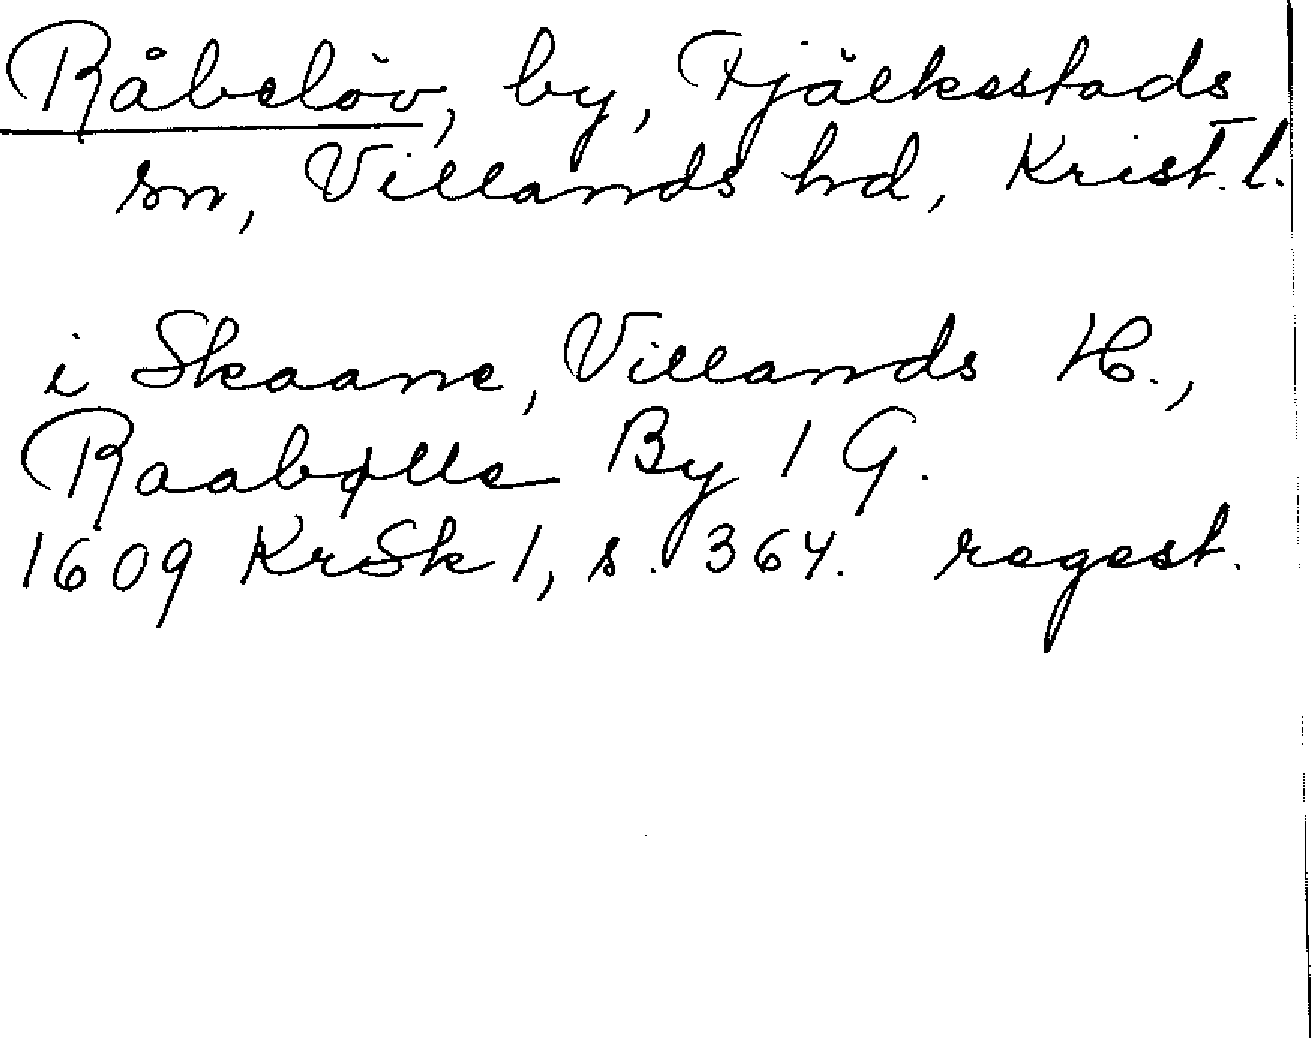 Råbelöv, by, Fjälkestads
sn, Villands hd, Krist. l.
i Skaane, Villands H.,
Raabølle By 1 G.
1609 KrSk 1, s. 364. regest.